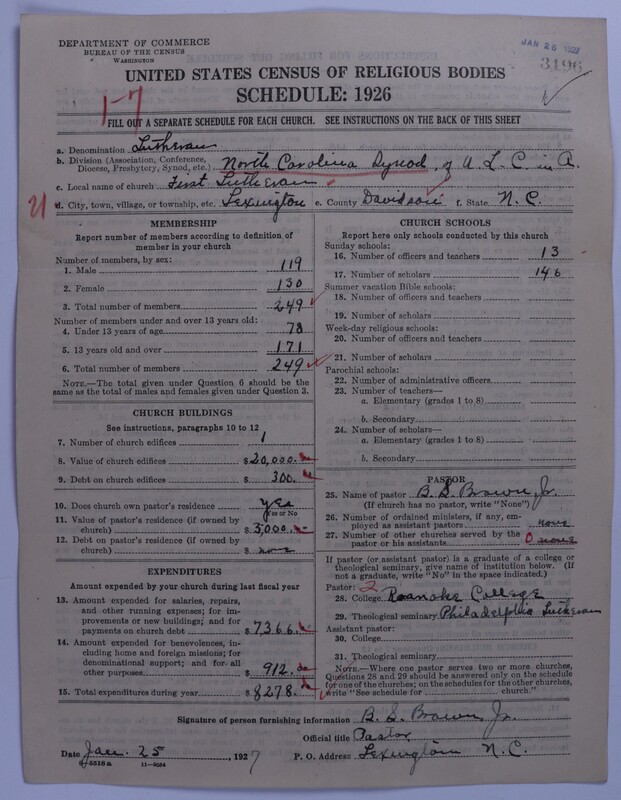 DEPARTMENT OF COMMERCE
BUREAU OF THE CENSUS
WASHINGTON
JAN 26 1927
3196
UNITED STATES CENSUS OF RELIGIOUS BODIES
SCHEDULE: 1926
1-7
FILL OUT A SEPARATE SCHEDULE FOR EACH CHURCH. SEE INSTRUCTIONS ON THE BACK OF THIS SHEET
a. Denomination Lutheran
b. Division (Association, Conference, Diocese, Presbytery, Synod, etc.) North Carolina Synod, of U. L. C. in A.
c. Local name of church First Lutheran
d. City, town, village, or township, etc. Lexington e. County Davidson f. State N. C.
MEMBERSHIP
Report number of members according to definition of
member in your church
Number of members, by sex:
1. Male 119
2. Female 130
3. Total number of members 249
Number of members under and over 13 years old:
4. Under 13 years of age 78
5. 13 years old and over 171
6. Total number of members 249
NOTE.—The total given under Question 6 should be
same as the total of males and females given under Question 3.
CHURCH BUILDINGS
See instructions, paragraphs 10 to 12
7. Number of church edifices 1
8. Value of church edifices $20,000.
9. Debt on church edifices $ 300.
10. Does church own pastor's residence yes
(Yes or No
11. Value of pastor's residence (if owned by
church) $5,000.
12. Debt on pastor's residence (if owned by
church) $ none
EXPENDITURES
Amount expended by your church during last fiscal year
13. Amount expended for salaries, repairs,
and other running expenses; for im-
provements or new buildings; and for
payments on church debt $7366.
14. Amount expended for benevolences, in-
cluding home and foreign missions; for
denominational support; and for all
other purposes $ 912.
15. Total expenditures during year $8278.
CHURCH SCHOOLS
Report here only schools conducted by this church
Sunday schools:
16. Number of officers and teachers 13
17. Number of scholars 146
Summer vacation Bible schools:
18. Number of officers and teachers
19. Number of scholars
Week-day religious schools:
20. Number of officers and teachers
21. Number of scholars
Parochial schools:
22. Number of administrative officers
23. Number of teachers—
a. Elementary (grades 1 to 8)
b. Secondary
24. Number of scholars—
a. Elementary (grades 1 to 8)
b. Secondary
PASTOR
25. Name of pastor B. S. Brown Jr.
(If church has no pastor, write "None")
26. Number of ordained ministers, if any, em-
ployed as assistant pastors none
27. Number of other churches served by the
pastor or his assistants 0 none
If pastor (or assistant pastor) is a graduate of a college or
theological seminary, give name of institution below. (If
not a graduate, write "No" in the space indicated.)
Pastor: 2
28. College Roanoke College
29. Theological seminary Philadelphia Lutheran
Assistant pastor:
30. College
31. Theological seminary
NOTE.—Where one pastor serves two or more churches,
Questions 28 and 29 should be answered only on the schedule
for one of the churches; on the schedules for the other churches,
write "See schedule for church."
Signature of person furnishing information B. S. Brown Jr.
Official title Pastor
Date Jan. 25, 1927 P. O. Address Lexington N. C.
5518a 11—9084